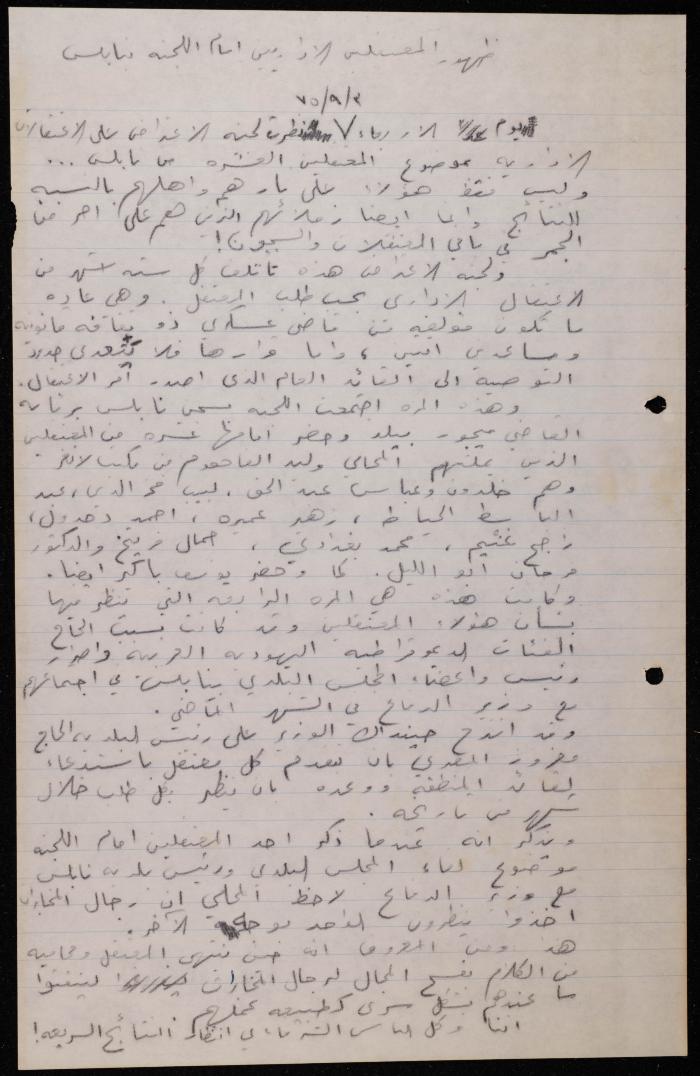 ظهور المعتقلين الاداريين امام اللجنه بنابلس
٧٥/٩/٣
يوم الاربعاء نظرت لجنه الاعتراض على الاعتقالات
الاداريه بموضوع المعتقلين العشره من نابلس ...
وليس فقط هؤلاء على نار هم واهلهم بالنسبه
للنتائج وانما ايضا زملائهم الذين هم على احر من
الجمر في باقي المعتقلات والسجون!
ولجنه الاعتراض هذه تأتلف كل سته اشهر من
الاعتقال الاداري بحسب طلب المعتقل. وهي عاده
ما تكون مؤلفه من قاضي عسكري ذو ثقافه قانونيه
ومساعدين اثنين، واما قرارها فلا يتعدى حدود
التوصيه الى القائد العام الذي اصدر امر الاعتقال.
وهذه المره اجتمعت اللجنه بسجن نابلس برئاسه
القاضي ميجور بيلد وحضر امامها عشره من المعتقلين
الذين يمثلهم المحامي وليد الفاهوم من مكتب لانغر
وهم خلدون وعباس عبد الحق، لبيب فخر الدين، عبد
الباسط الخياط، زهير عميره، احمد دحدول،
راجح غنيم، محمد بغدادي، جمال فريتخ والدكتور
فرحان ابو الليل. كما وحضر يوسف باكر ايضا.
وكانت هذه هي المره الرابعه التي تنظر فيها
بشأن هؤلاء المعتقلين وقد كانت بسبب الحاح
الفئات الديموقراطيه اليهوديه العربيه واصرار
رئيس واعضاء المجلس البلدي بنابلس في اجتماعهم
مع وزير الدفاع في الشهر الماضي.
وقد اقترح حينذاك الوزير على رئيس البلديه الحاج
معزوز المصري بان يتقدم كل معتقل باستدعاء
لقائد المنطقه ووعده بان ينظر بكل طلب خلال
شهر من تاريخه.
ويذكر انه عندما ذكر احد المعتقلين امام اللجنه
موضوع لقاء المجلس البلدي ورئيس بلديه نابلس
مع وزير الدفاع لاحظ المحامي ان رجال المخابرات
اخذوا ينظرون الواحد بوجه الآخر.
هذا ومن المعروف انه حين ينتهي المعتقل ومحاميه
من الكلام يفسح المجال لرجال المخابرات ليقدموا
ما عندهم بشكل سري كطبيعه عملهم
اننا وكل الناس الشرفاء في انتظار النتائج السريعه!